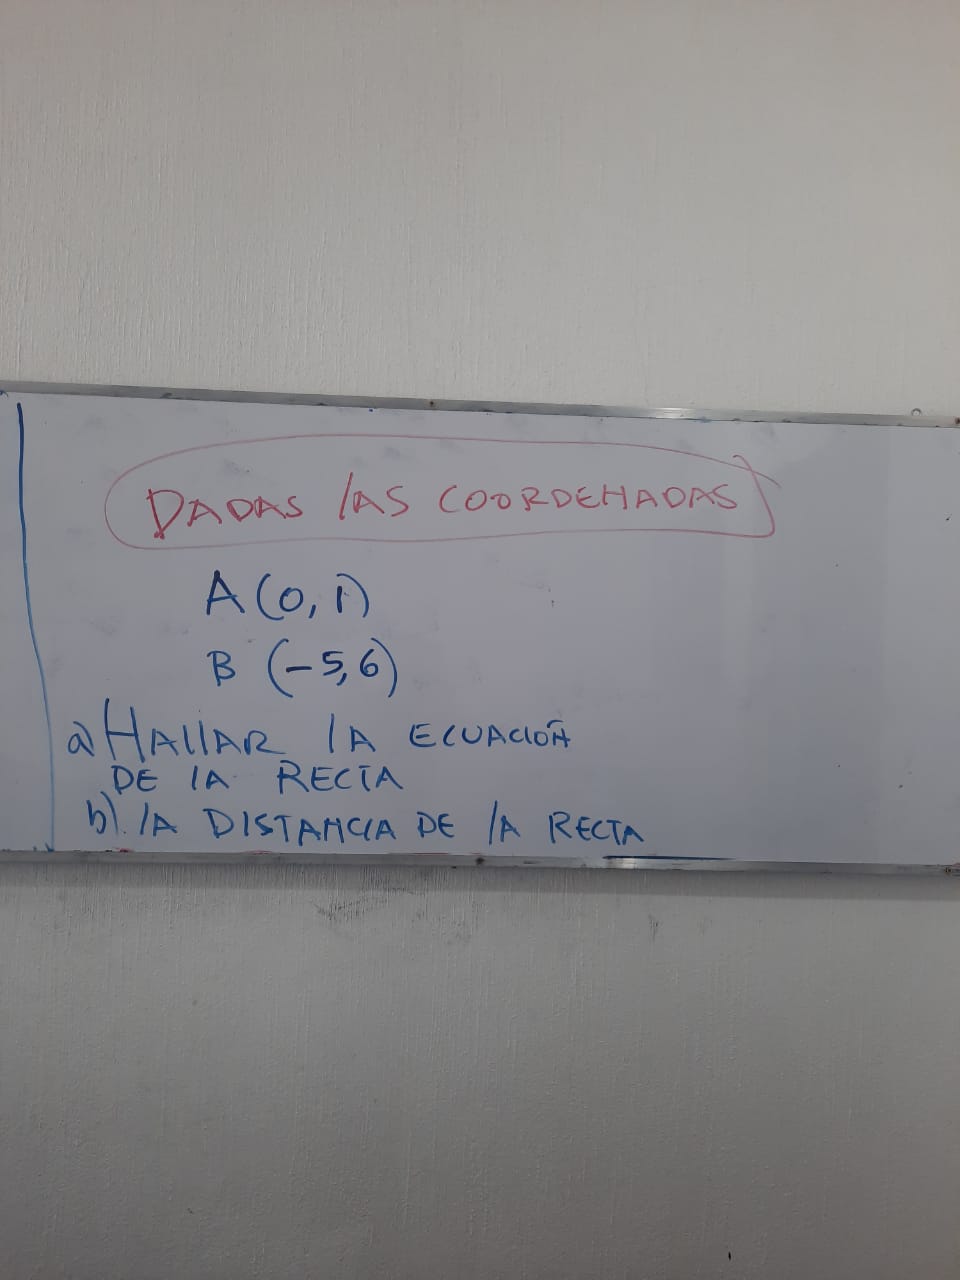 DADAS LAS COORDENADAS
A (0, 1)
B (-5, 6)
a) HALLAR LA ECUACIÓN
DE LA RECTA
b). LA DISTANCIA DE LA RECTA